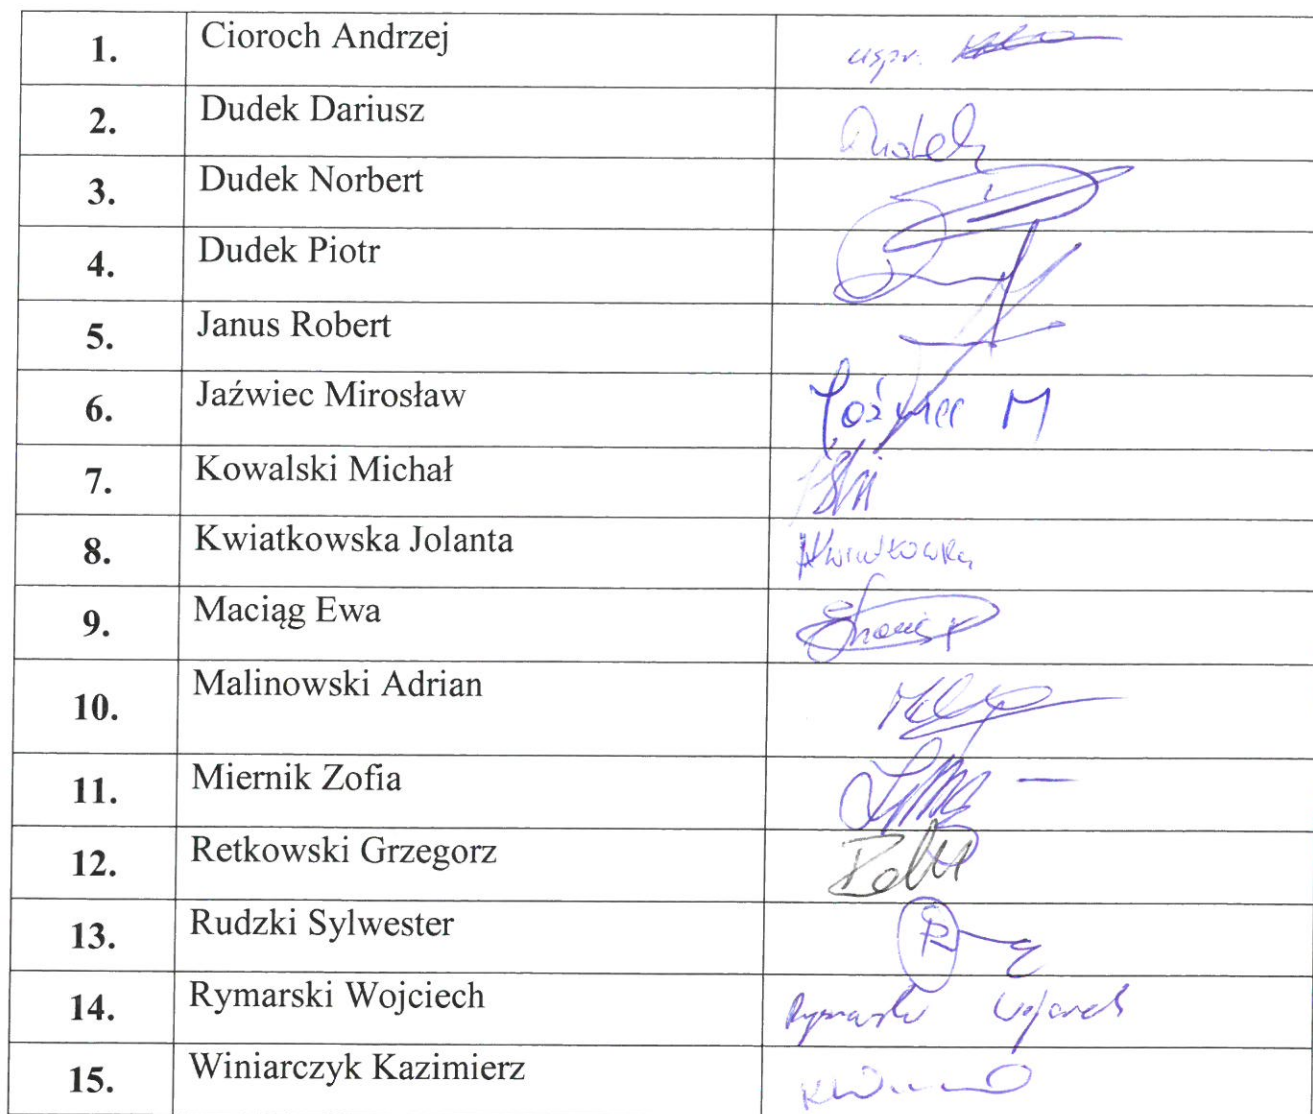 1. Cioroch Andrzej uspr.
2. Dudek Dariusz Dudek
3. Dudek Norbert
4. Dudek Piotr
5. Janus Robert
6. Jaźwiec Mirosław Jaźwiec M
7. Kowalski Michał
8. Kwiatkowska Jolanta JKwiatkowska
9. Maciąg Ewa
10. Malinowski Adrian
11. Miernik Zofia
12. Retkowski Grzegorz
13. Rudzki Sylwester
14. Rymarski Wojciech Rymarski Wojciech
15. Winiarczyk Kazimierz